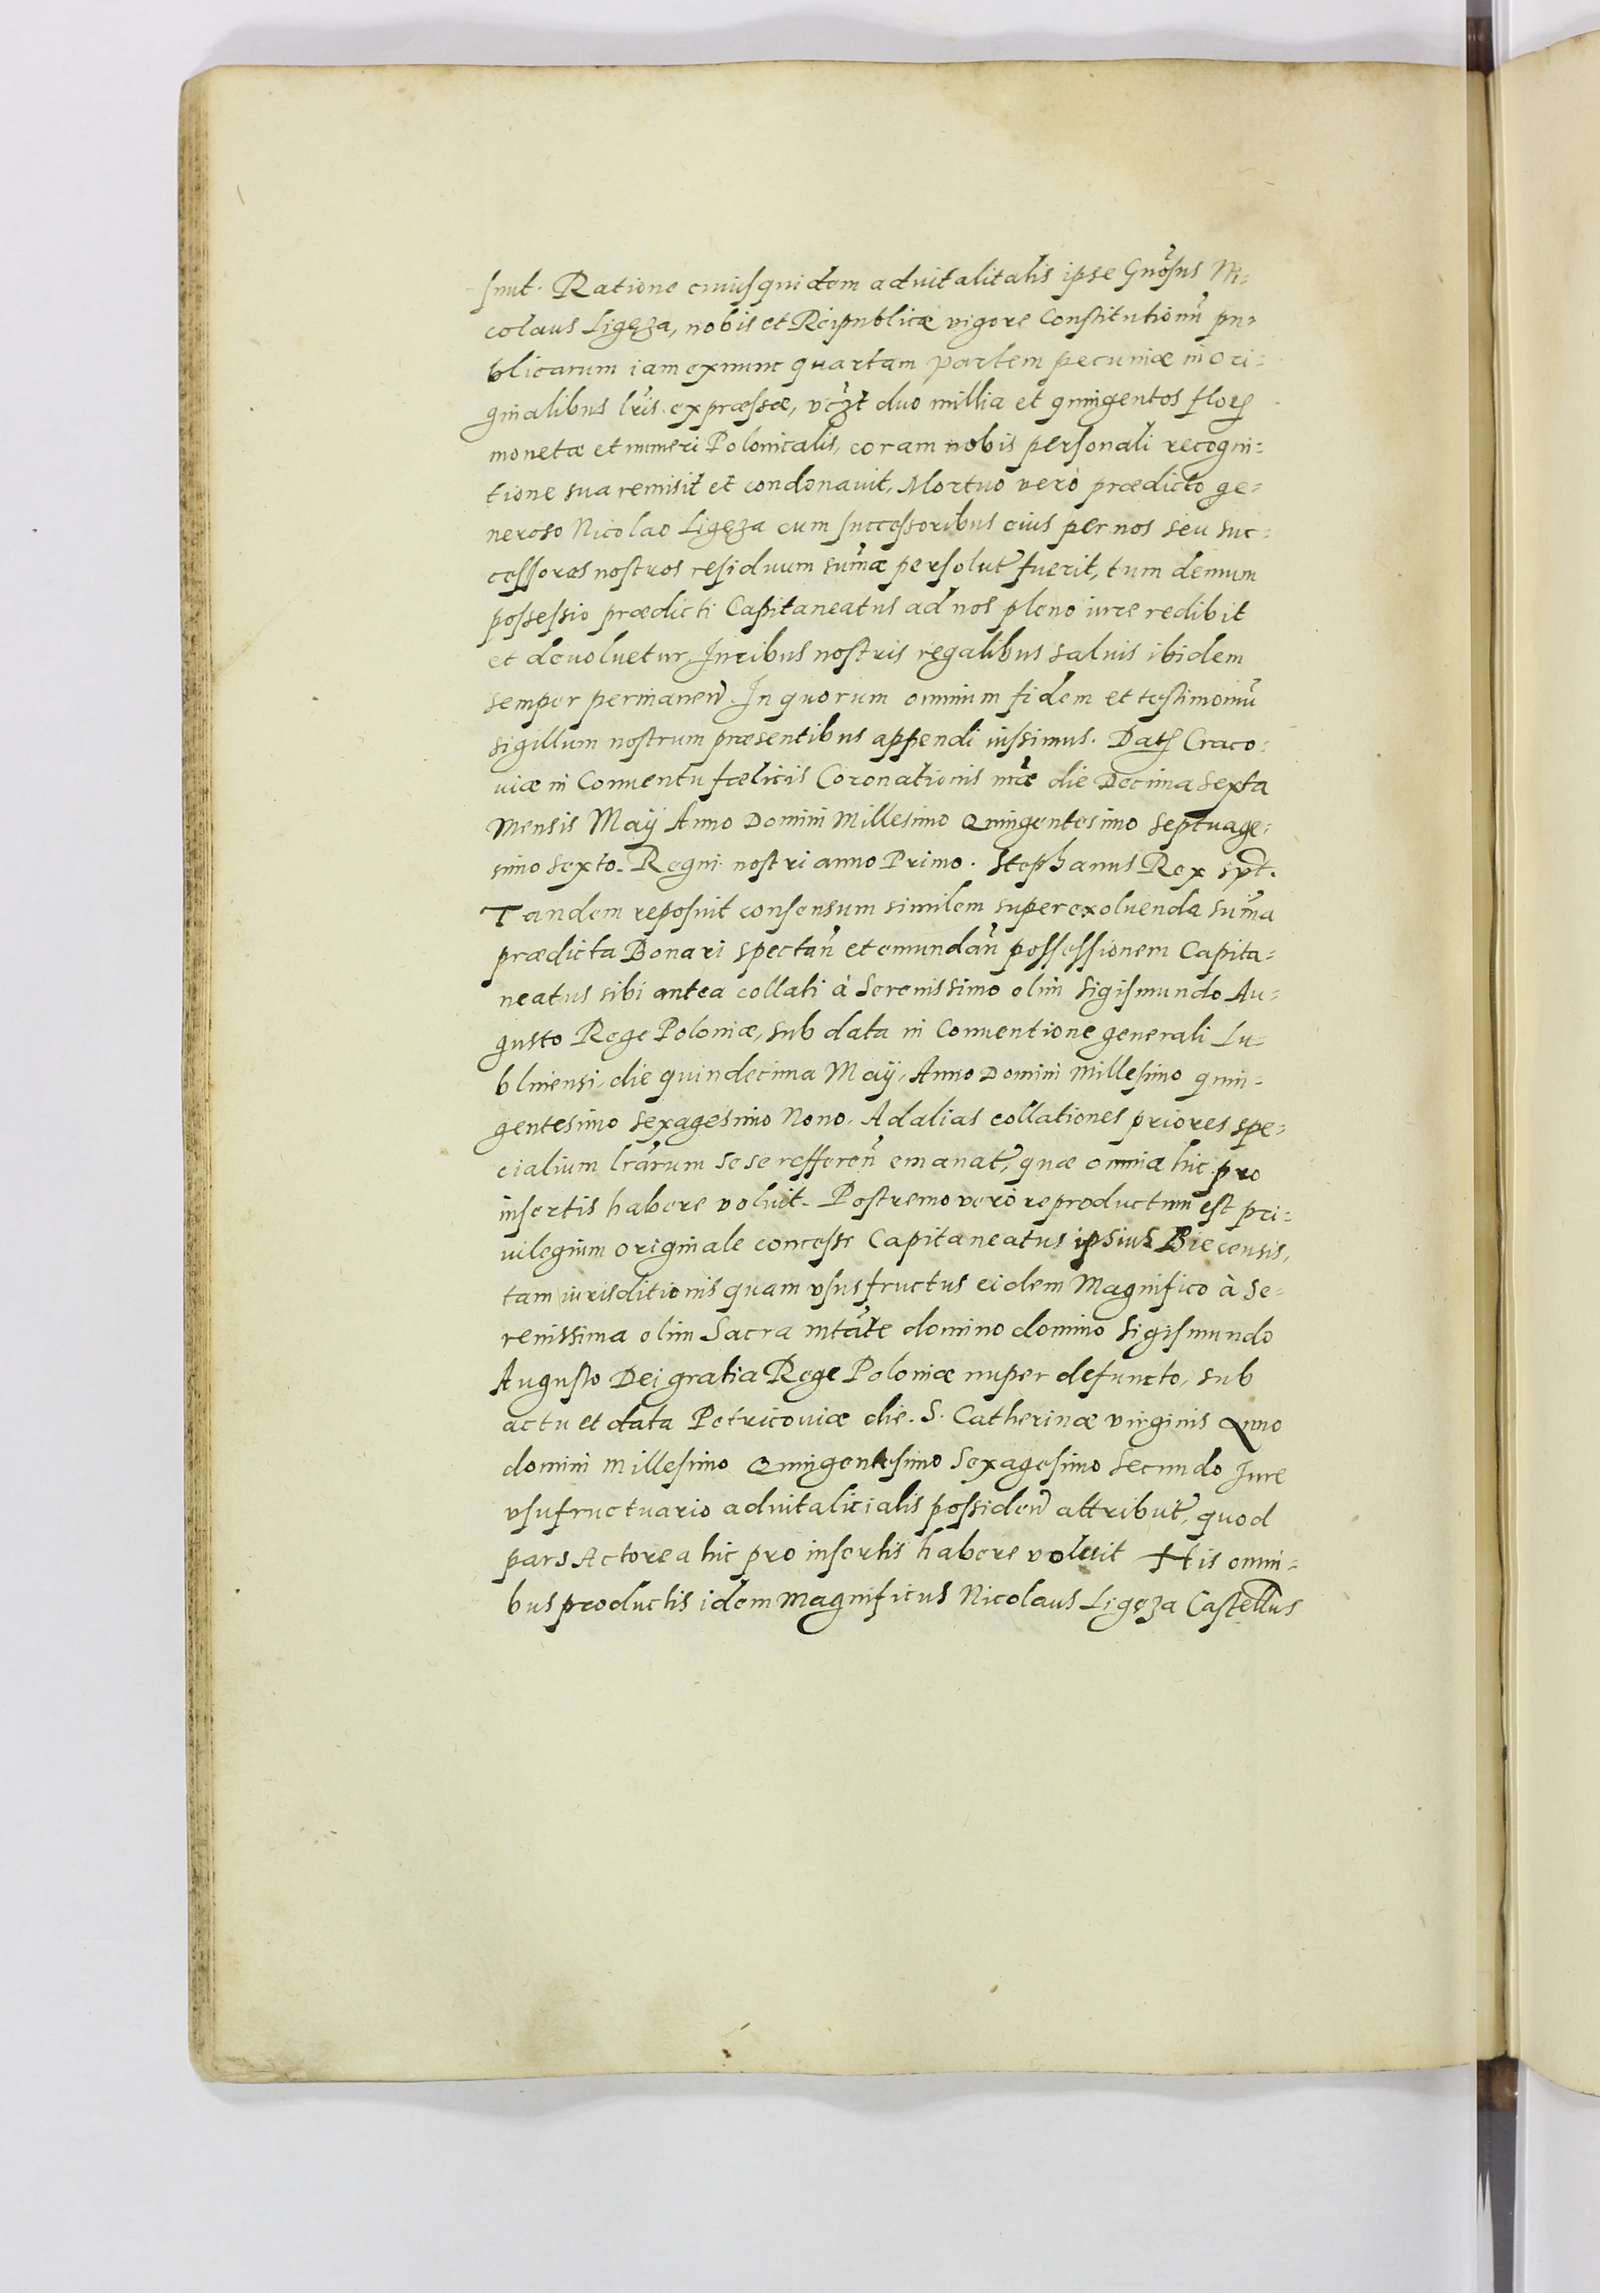 sint. Ratione cuiusquidem aduitalitatis ipse Gnosus Ni-
colaus Ligęza, nobis et Reipublicæ vigore Constitutionũ pu-
blicarum iam exnunc quartam partem pecuniæ in ori-
ginalibus lris. expræssæ, vczt duo millia et quingentos flor
monetæ et numeri Polonicalis, coram nobis personali recogni-
tione sua remisit et condonauit, Mortuo verò prædicto ge-
neroso Nicolao Ligęza cum successoribus eius per nos seu suc-
cessores nostros residuum sumæ persolut fuerit, tum demum
possessio prædicti Capitaneatus ad nos pleno iure redibit
et deuoluetur, Iuribus nostris regalibus saluis ibidem
semper permanen. In quorum omnium fidem et testimoniũ
sigillum nostrum præsentibus appendi iussimus. Dat Craco-
uiæ in Conuentu fœlicis Coronationis nræ die Decima sexta
Mensis Maij Anno Domini Millesimo Quingentesimo Septuage-
simo sexto. Regni nostri anno Primo. Stephanus Rex spt.
Tandem reposuit consensum similem super exoluenda suma
prædicta Bonari spectan et emundan possessionem Capita-
neatus sibi antea collati à Serenissimo olim Sigismundo Au-
gusto Rege Poloniæ, sub data in Conuentione generali Lu-
blinensi, die quindecima Maij, Anno Domini Millesimo quin-
gentesimo Sexagesimo Nono. Ad alias collationes priores spe-
cialium lrarum sese refferen emanat, quæ omnia hic pro
insertis habere voluit. Postremo verò reproductum est pri-
uilegium originale concess Capitaneatus ipsius Biecensis,
tam iurisditionis quam vsusfructus eidem Magnifico à Se-
renissima olim Sacra mtate domino domino Sigismundo
Augusto Dei gratia Rege Poloniæ nuper defuncto, sub
actu et data Petricouiæ die. S. Catherinæ virginis Anno
domini Millesimo Quingentesimo Sexagesimo Secundo Iure
vsufructuario aduitalicialis possiden attribut, quod
pars Actorea hic pro insertis habere voluit His omni-
bus productis idem Magnificus Nicolaus Ligęza Castellus